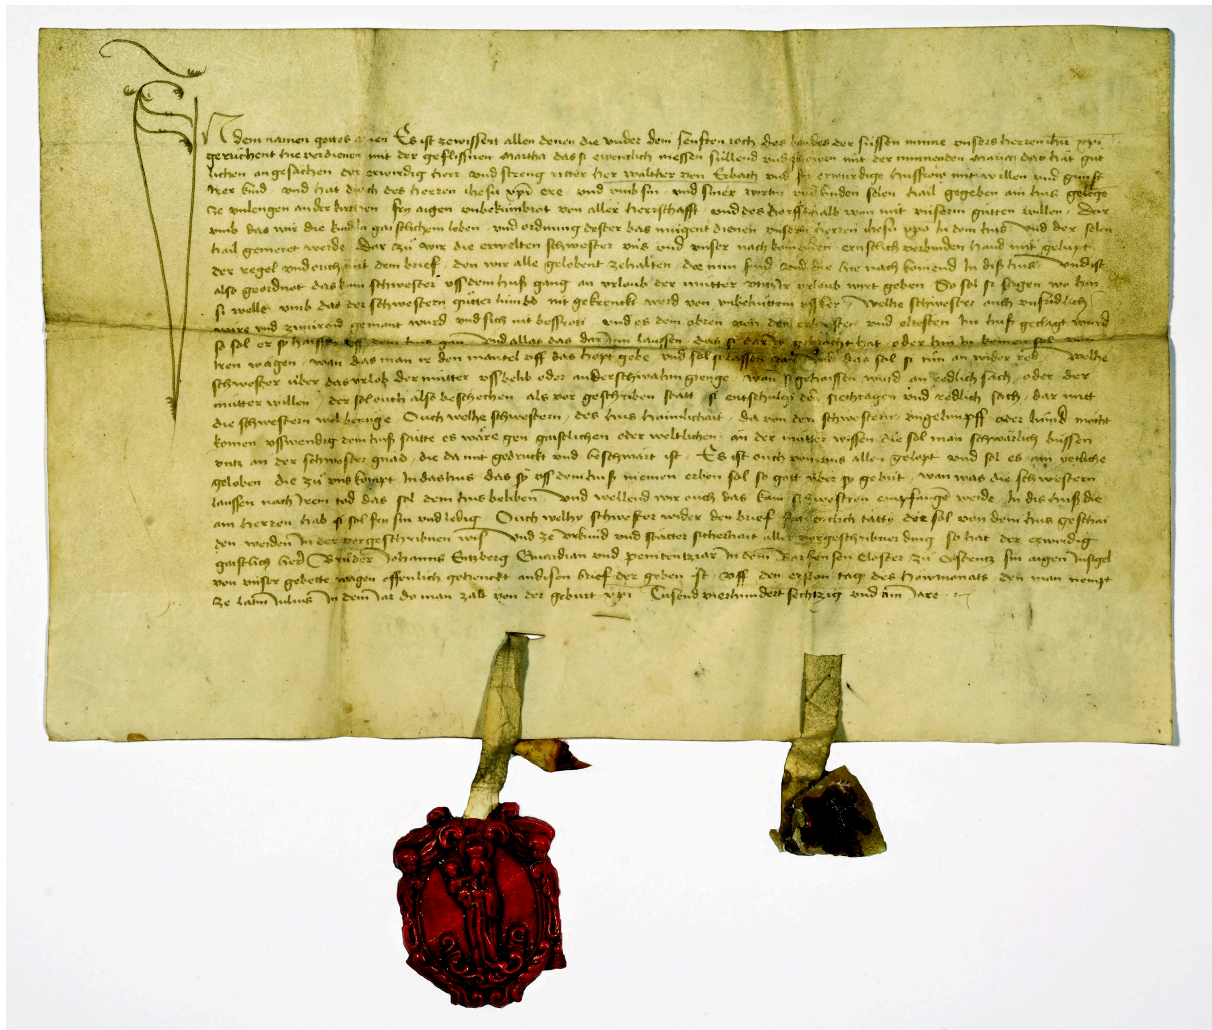 In dem namen gottes amen Es ist zewissent allen denen die under dem senften ioch des bandes der süssen minne unsers herren ihu xpi
geruchent ze verdienen mit der geflissnen Martha das si ewenclich niessen süllend und schowen mit der minnenden Maria das hat güt
lichen angesachen der erwirdig herr und streng ritter her walther von Erbach und sin erwirdige husfrow mit willen und gunst
irer kind und hat durch des herren ihesu xpi ere und umb sin und siner wirtin und kinden selen hail gegeben ain hus gelege
ze an der kirchen fry aigen unbekumbrot von aller herrschafft und des dorffs halb won mit unserm gütten willen Dar
umb das wir die kind in gaistlichem leben und ordnung dester bas mügent dienen unserm herren ihesu xpo In dem hus und der selen
hail gemeret werde Dar zü wir die erwelten schwester uns und unser nach komenen ernstlich verbinden hand mit gelupt
der regel und ouch mit dem brief den wir alle gelobent zehalten die nun sind und die hie nach komend In dis hus und ist
also geordnot das kain schwester uss dem huss gang an urlaub der mütter wirt geben So sol si sagen wo hin
si welle umb das der schwestern gütter lümbd nit gekrenckt werd von unbehüttem Welhe schwester ouch unfridlich
wäre und zwürend gemant wurd und sich nit besseroti und es dem obren von den erbersten und eltesten Im huss geclagt wurd
so sol er sy haissen uss dem hus gan und alles das dar Inn laussen das si dar In gebracht hat oder hin In keinen sol
tren wägen wan das man ir den mantel uff das hopt gebe und sol si lassen und das sol si nün an wider red Welhe
schwester über das urlob der mütter uss belib oder anderschwahin gienge wan si gehaissen wurd an redlich sach oder der
mütter willen der sol ouch also beschechen als vor geschriben statt si entschulge den siechtagen und redlich sach dar mitt
die schwestern wol benüge Ouch welhe schwestern des hus haimlichait da von den schwestern ungelimpff oder lümd möcht
komen usswendig dem huss saitte es wäre gen gaistlichen oder weltlichen an der mütter wissen die sol man schwärlich büssen
untz an der schwester gnad die da mit gedruckt und beschwärt ist Es ist ouch von uns allen gelopt und sol es ain yetliche
geloben die zü uns kompt In das hus das sy uss dem huss niemen erben sol so gott über sy gebüt wan was die schwestern
laussen nach Irem tod das sol dem hus beliben und wellend wir ouch das kain schwestren empfange werde In dis huss die
ain herren hab si sol fry sin und ledig Ouch welhy schwester wider den brief tätty der sol von dem hus geschai
den werden In der vorgeschribnen wis und ze urkünd und stätter sicherhait aller vorgeschribner ding so hat der erwirdig
gaistlich herr Brüder Johanns Entzberg Guardian und penitentziar In dem Barfüssen Closter zü Costentz sin aigen Insigel
von unser gebette wägen offenlich gehenckt an disen brief der geben ist uff den ersten tag des höwmonats den man nempt
ze latin Julius In dem Jar do man zalt von der geburt xpi Tusend vierhundert sechtzig und ain Jare